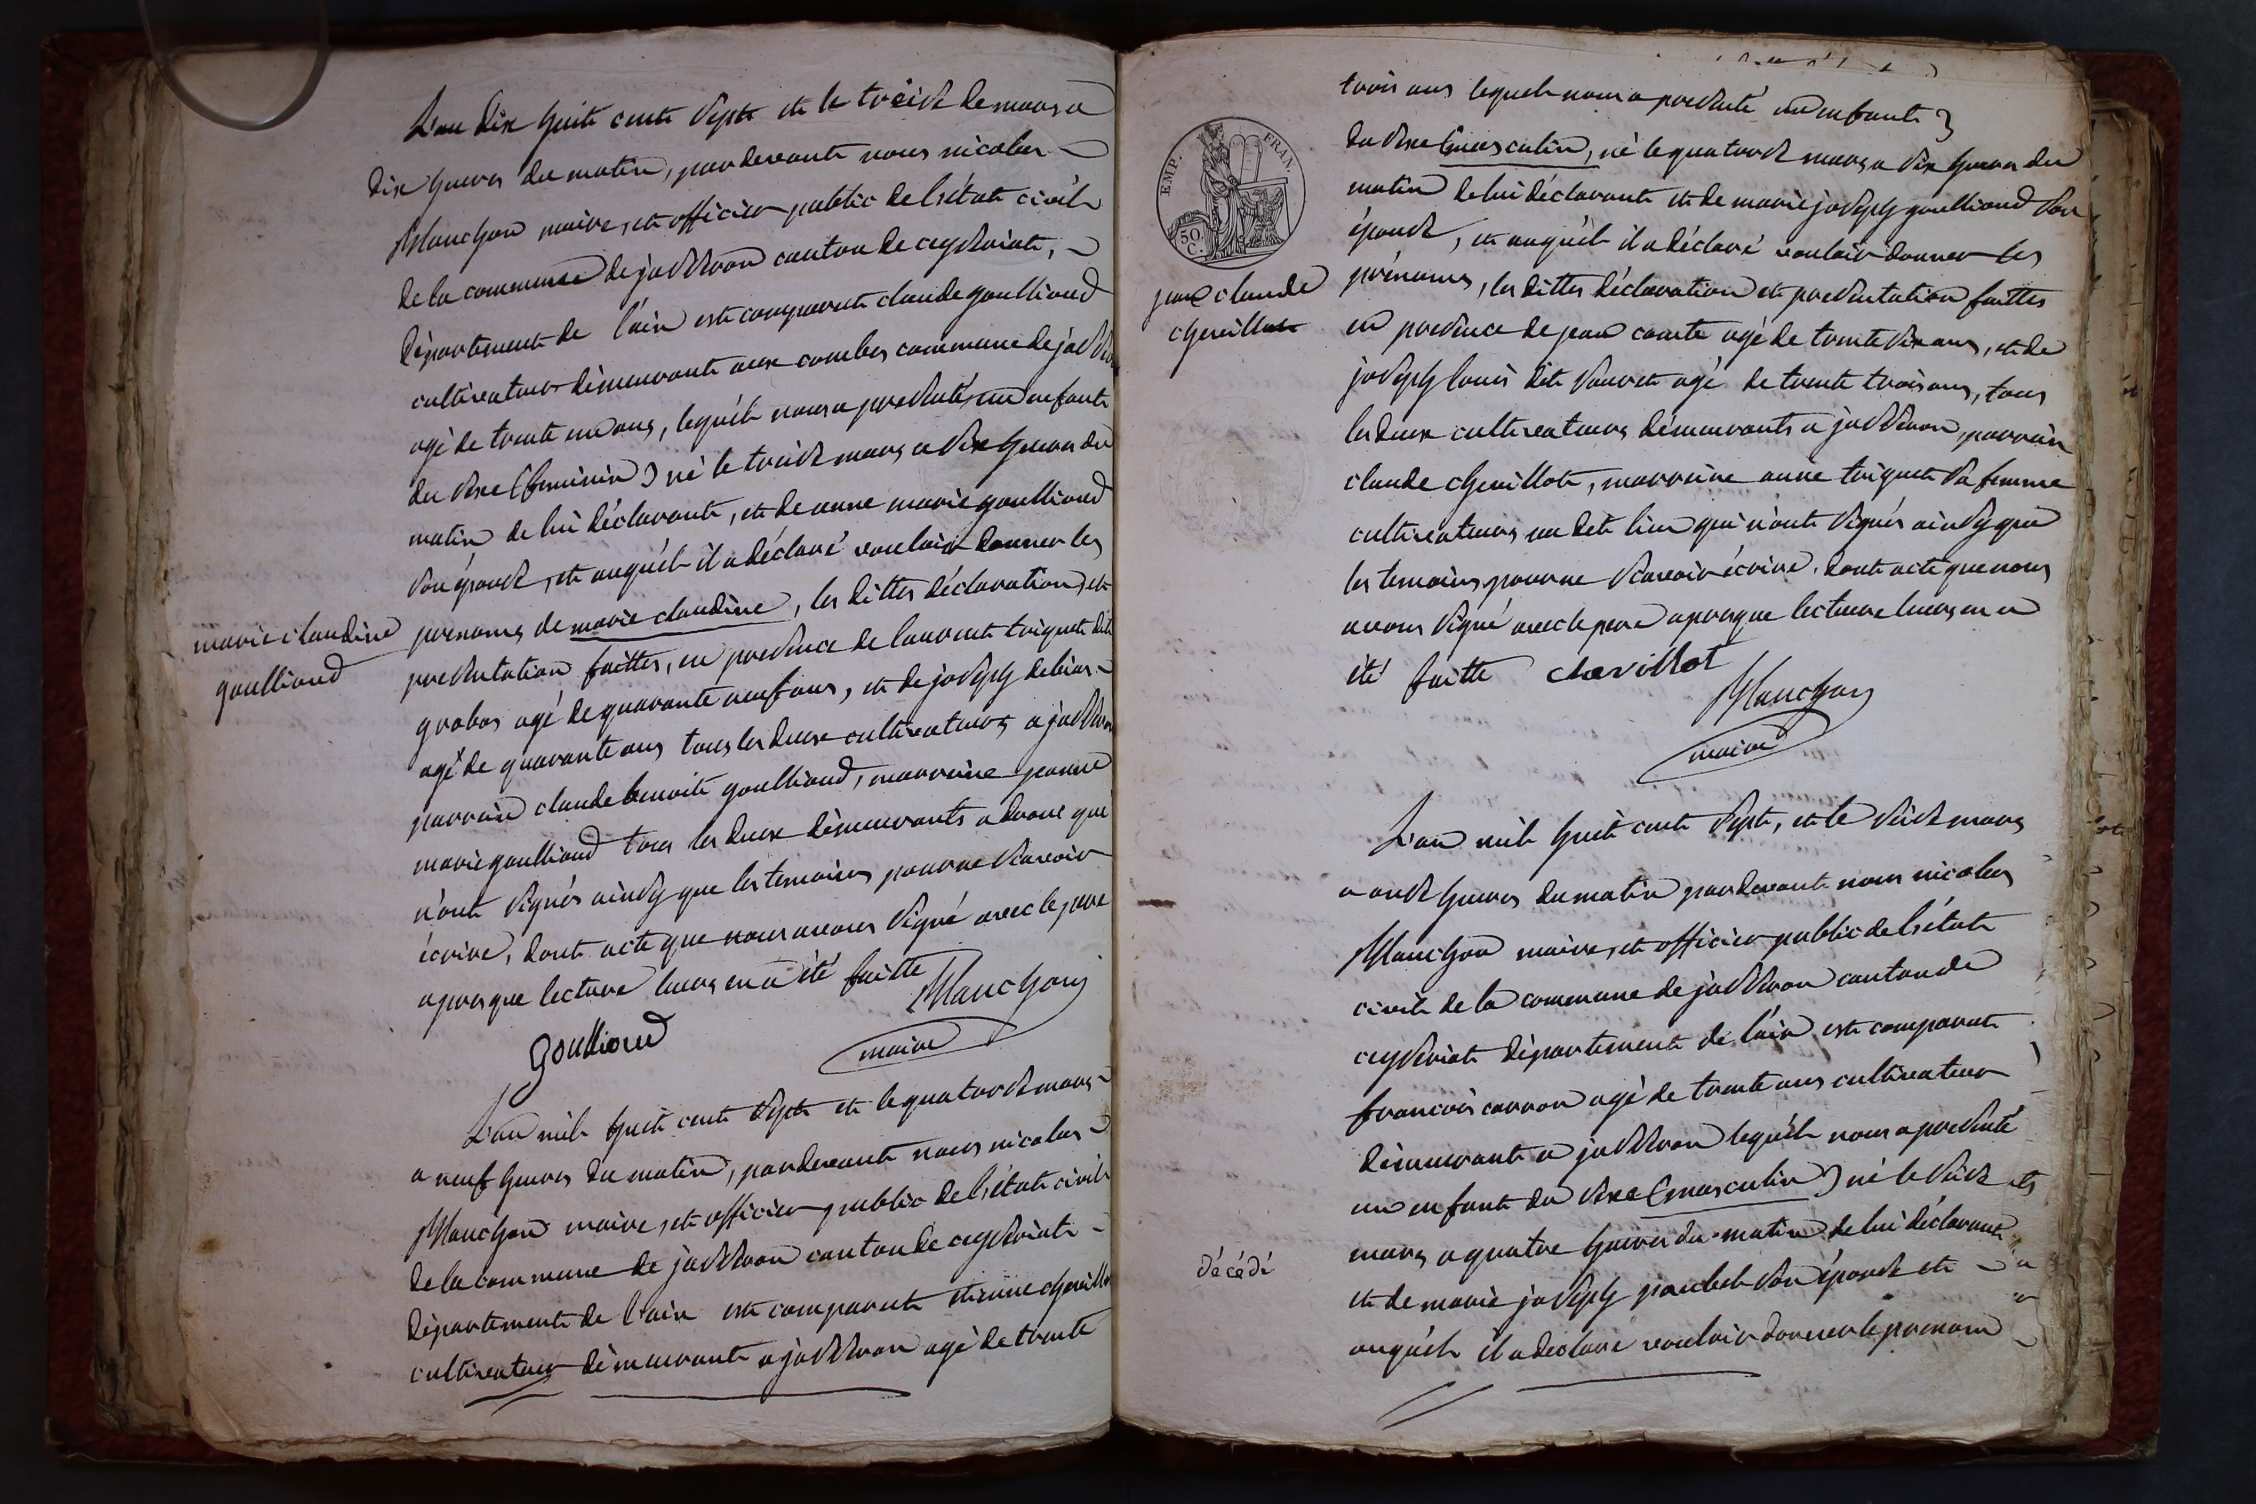 L'an dix huit cent sept et le treize de mars a
dix heures du matin, pardevant nous nicolas
Manchon maire, et officier public de l'état civil
de la commune de jasseron canton de ceyzeriat,
département de l'ain est comparut claude goullioud
cultivateur démeurant aux combes commune de jasseron
agé de trente un ans, lequél nous a presenté, un enfant
du sexe (feminin) né le treize mars a six heures du
matin de lui déclarant, et de anne marie goullioud
son épouse, et auquél il a déclaré vouloir donner les
prenoms de marie claudine, les dittes déclaration, et
presentation faittes, en presence de laurent triquet dit
grobas agé de quarante neuf ans, et de joseph debias
agé de quarante ans tous les deux cultivateurs a jasseron
parrain claude benoit goullioud, marraine jeanne
marie goullioud tous les deux démeurants a drom que
n'ont signés ainsy que les temoins pour ne scavoir
écrire, dont acte que nous avons signé avec le pere
apres que lecture leurs en a été faitte
Manchon
Goullioud
maire
marie claudine
goullioud
L'an mil huit cent sept et le quatorze mars
a neuf heures du matin, pardevant nous nicolas
Manchon maire, et officier public de l'état civil
de la commune de jasseron canton de ceyzeriat
département de l'ain est comparut etienne chevillot
cultivateur démeurant a jasseron agé de trente
trois ans lequel nous a presenté un enfant
du sexe (masculin, né le quatorze mars a six heures du
matin de lui déclarant et de marie joseph goullioud son
épouse, et auquél il a déclaré vouloir donner les
prénoms, les dittes déclaration et presentation faittes
en presence de jean comte agé de trente six ans, et de
joseph louis dit Vauret agé de trente trois ans, tous
les deux cultivateurs démeurants a jasseron, parrain
claude chevillot, marraine anne triquet sa femme
cultivateurs au dit lieu qui n'ont signés ainsy que
les temoins pour ne scavoir écrire. dont acte que nous
avons signé avec le pere apres que lecture leurs en a
été faitte chevillot
Manchon
maire
EMP. FRAN.
50
C.
jean claude
chevillot
L'an mil huit cent sept, et le seize mars
a onze heures du matin pardevant nous nicolas
Manchon maire, et officier public de l'état
civil de la commune de jasseron canton de
ceyzeriat département de l'ain est comparut
francois carron agé de trente ans cultivateur
démeurant a jasseron lequél nous a presenté
un enfant du sexe (masculin) né le seize
mars a quatre heures du matin de lui déclarant
et de marie joseph son épouse et
auquél il a declaré vouloir donner le prenom
décédé